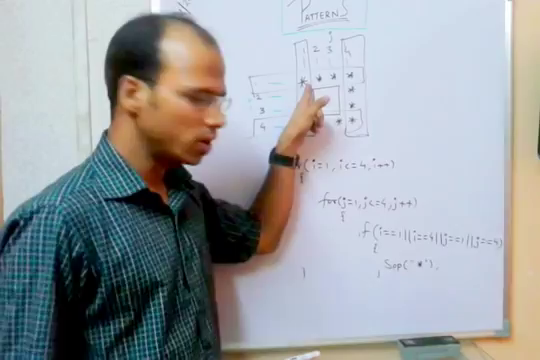 PATTERNS
j
1 2 3 4
* * * *
2 *
3 *
4 * *
(i=1, i<=4, i++)
{
for(j=1, j<=4, j++)
{
if(i==1||i==4||j==1||j==4)
{
Sop("*"),
}